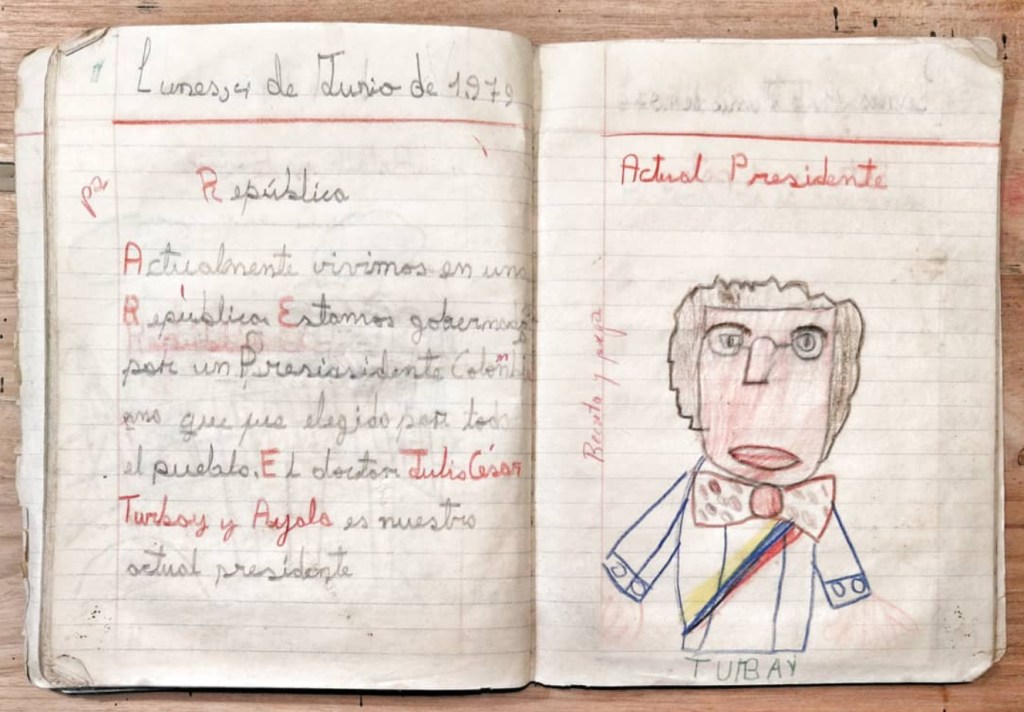 Lunes, 4 de Junio de 1979
República
Actualmente vivimos en una
República Estamos gobernad
por un Presiasidente Colombi
ano que fue elegido por todo
el pueblo. El doctor Julio César
Turbay y Ayala es nuestro
actual presidente
Actual Presidente
TURBAY